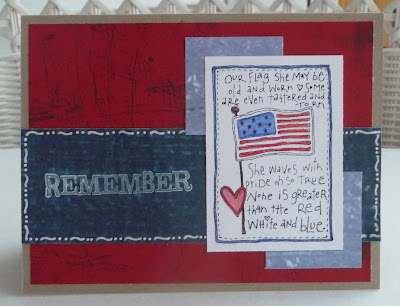 REMEMBER
Our flag she may be
old and worn some
are even tattered and
torn
She waves with
pride oh so true
None is greater
than the red
white and blue.